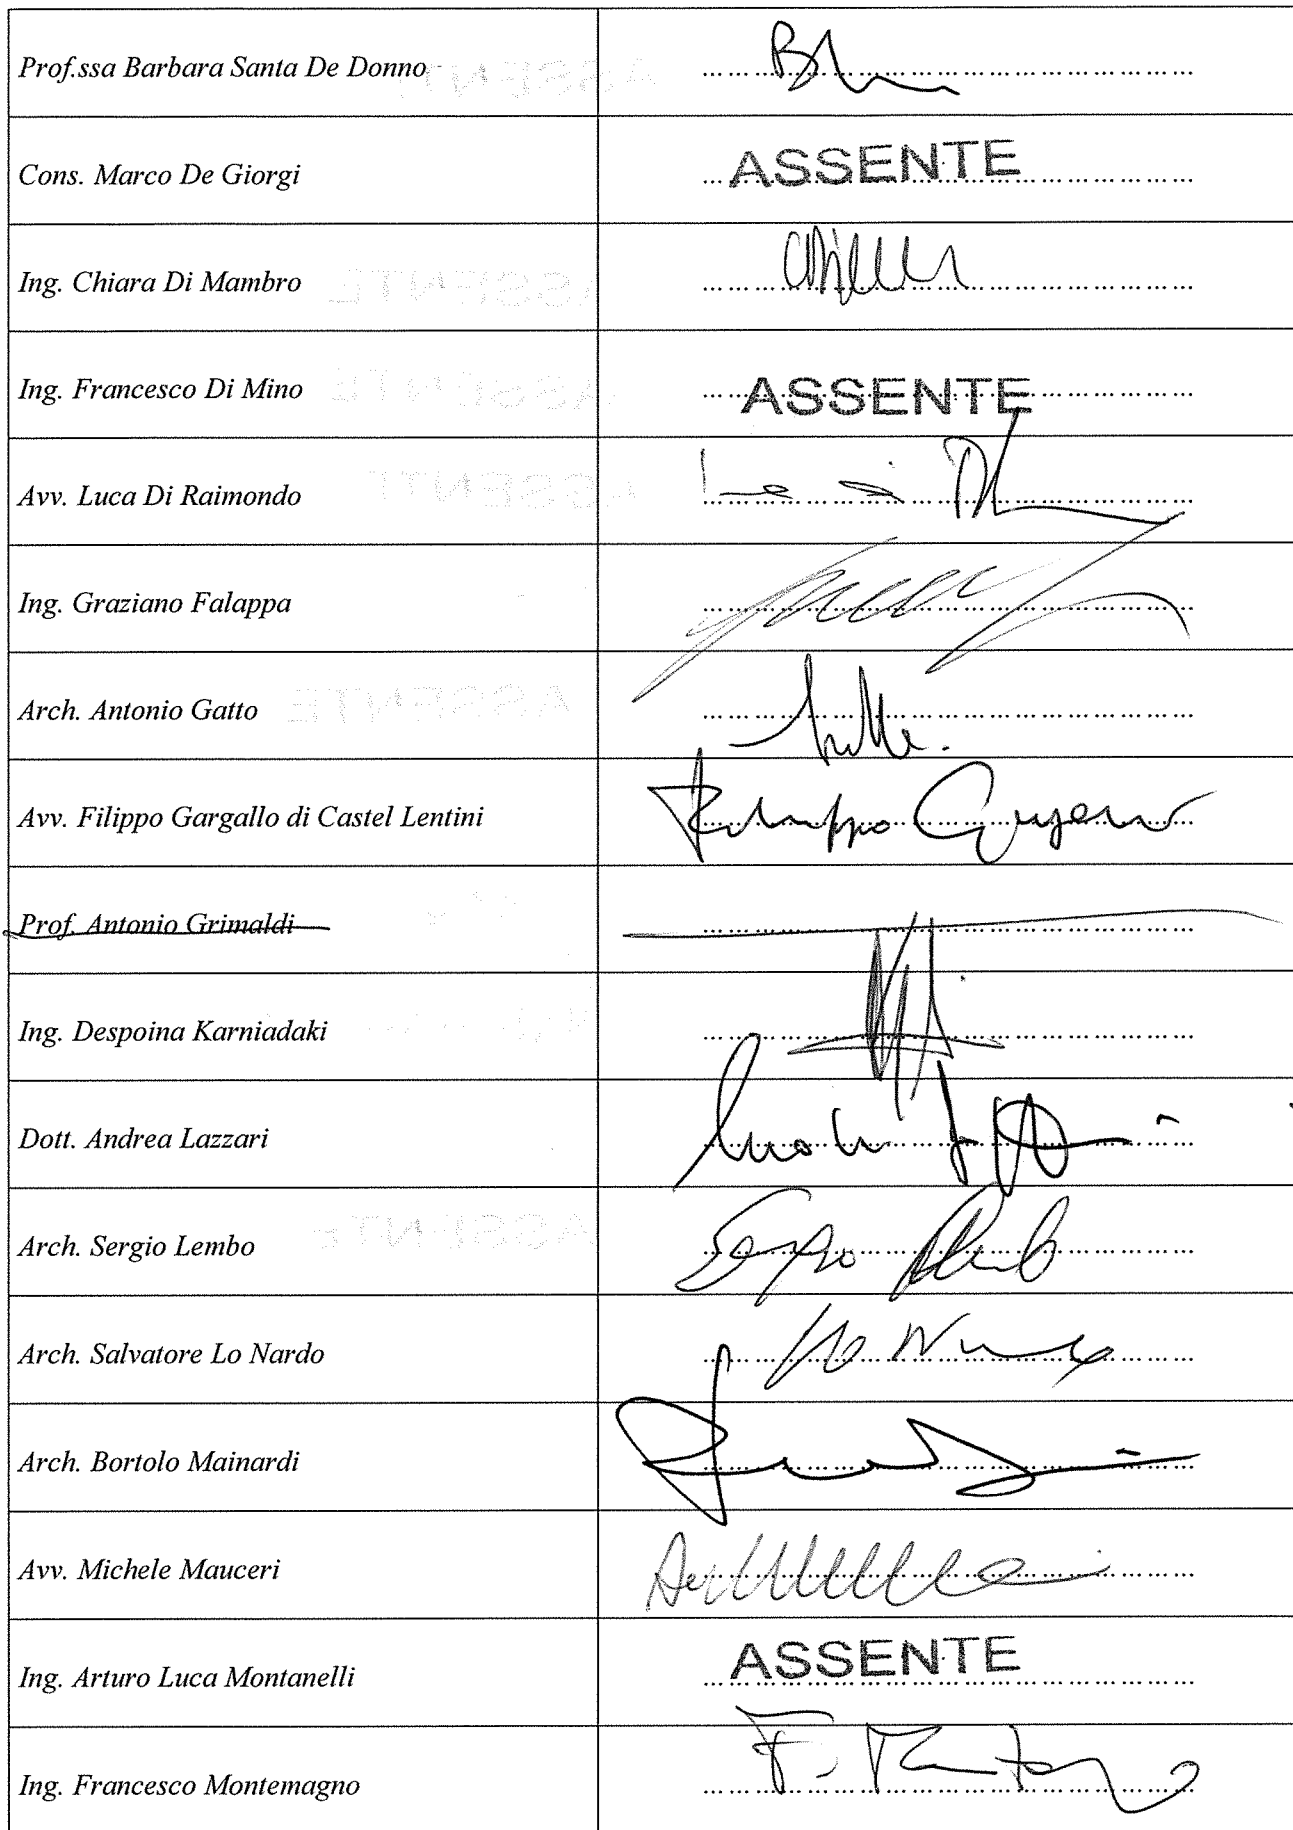 Prof.ssa Barbara Santa De Donno
Cons. Marco De Giorgi ASSENTE
Ing. Chiara Di Mambro
Ing. Francesco Di Mino ASSENTE
Avv. Luca Di Raimondo
Ing. Graziano Falappa
Arch. Antonio Gatto
Avv. Filippo Gargallo di Castel Lentini
Prof. Antonio Grimaldi
Ing. Despoina Karniadaki
Dott. Andrea Lazzari
Arch. Sergio Lembo
Arch. Salvatore Lo Nardo
Arch. Bortolo Mainardi
Avv. Michele Mauceri
Ing. Arturo Luca Montanelli ASSENTE
Ing. Francesco Montemagno